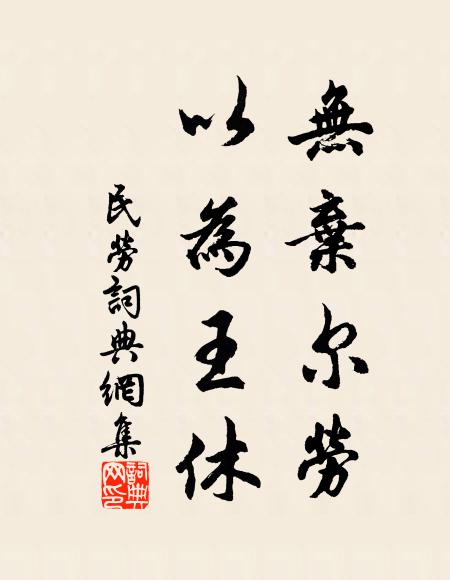 無棄尔勞
以為王休
民勞詞典網集
詞典网印